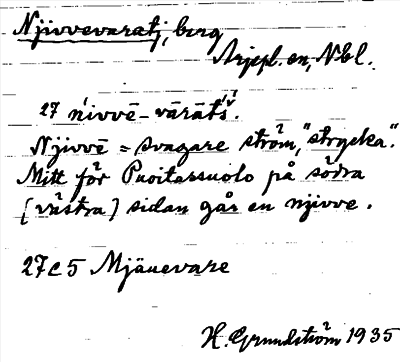 Njivvevaratj, berg
Arjepl. sn, Nbl.
27 nivvē-vārāts̀.
Njivvē = svagare ström, "strycka".
Mitt för Puoitassuolo på södra
(västra) sidan går en njivve.
27C5 Mjäuevare
H. Grundström 1935